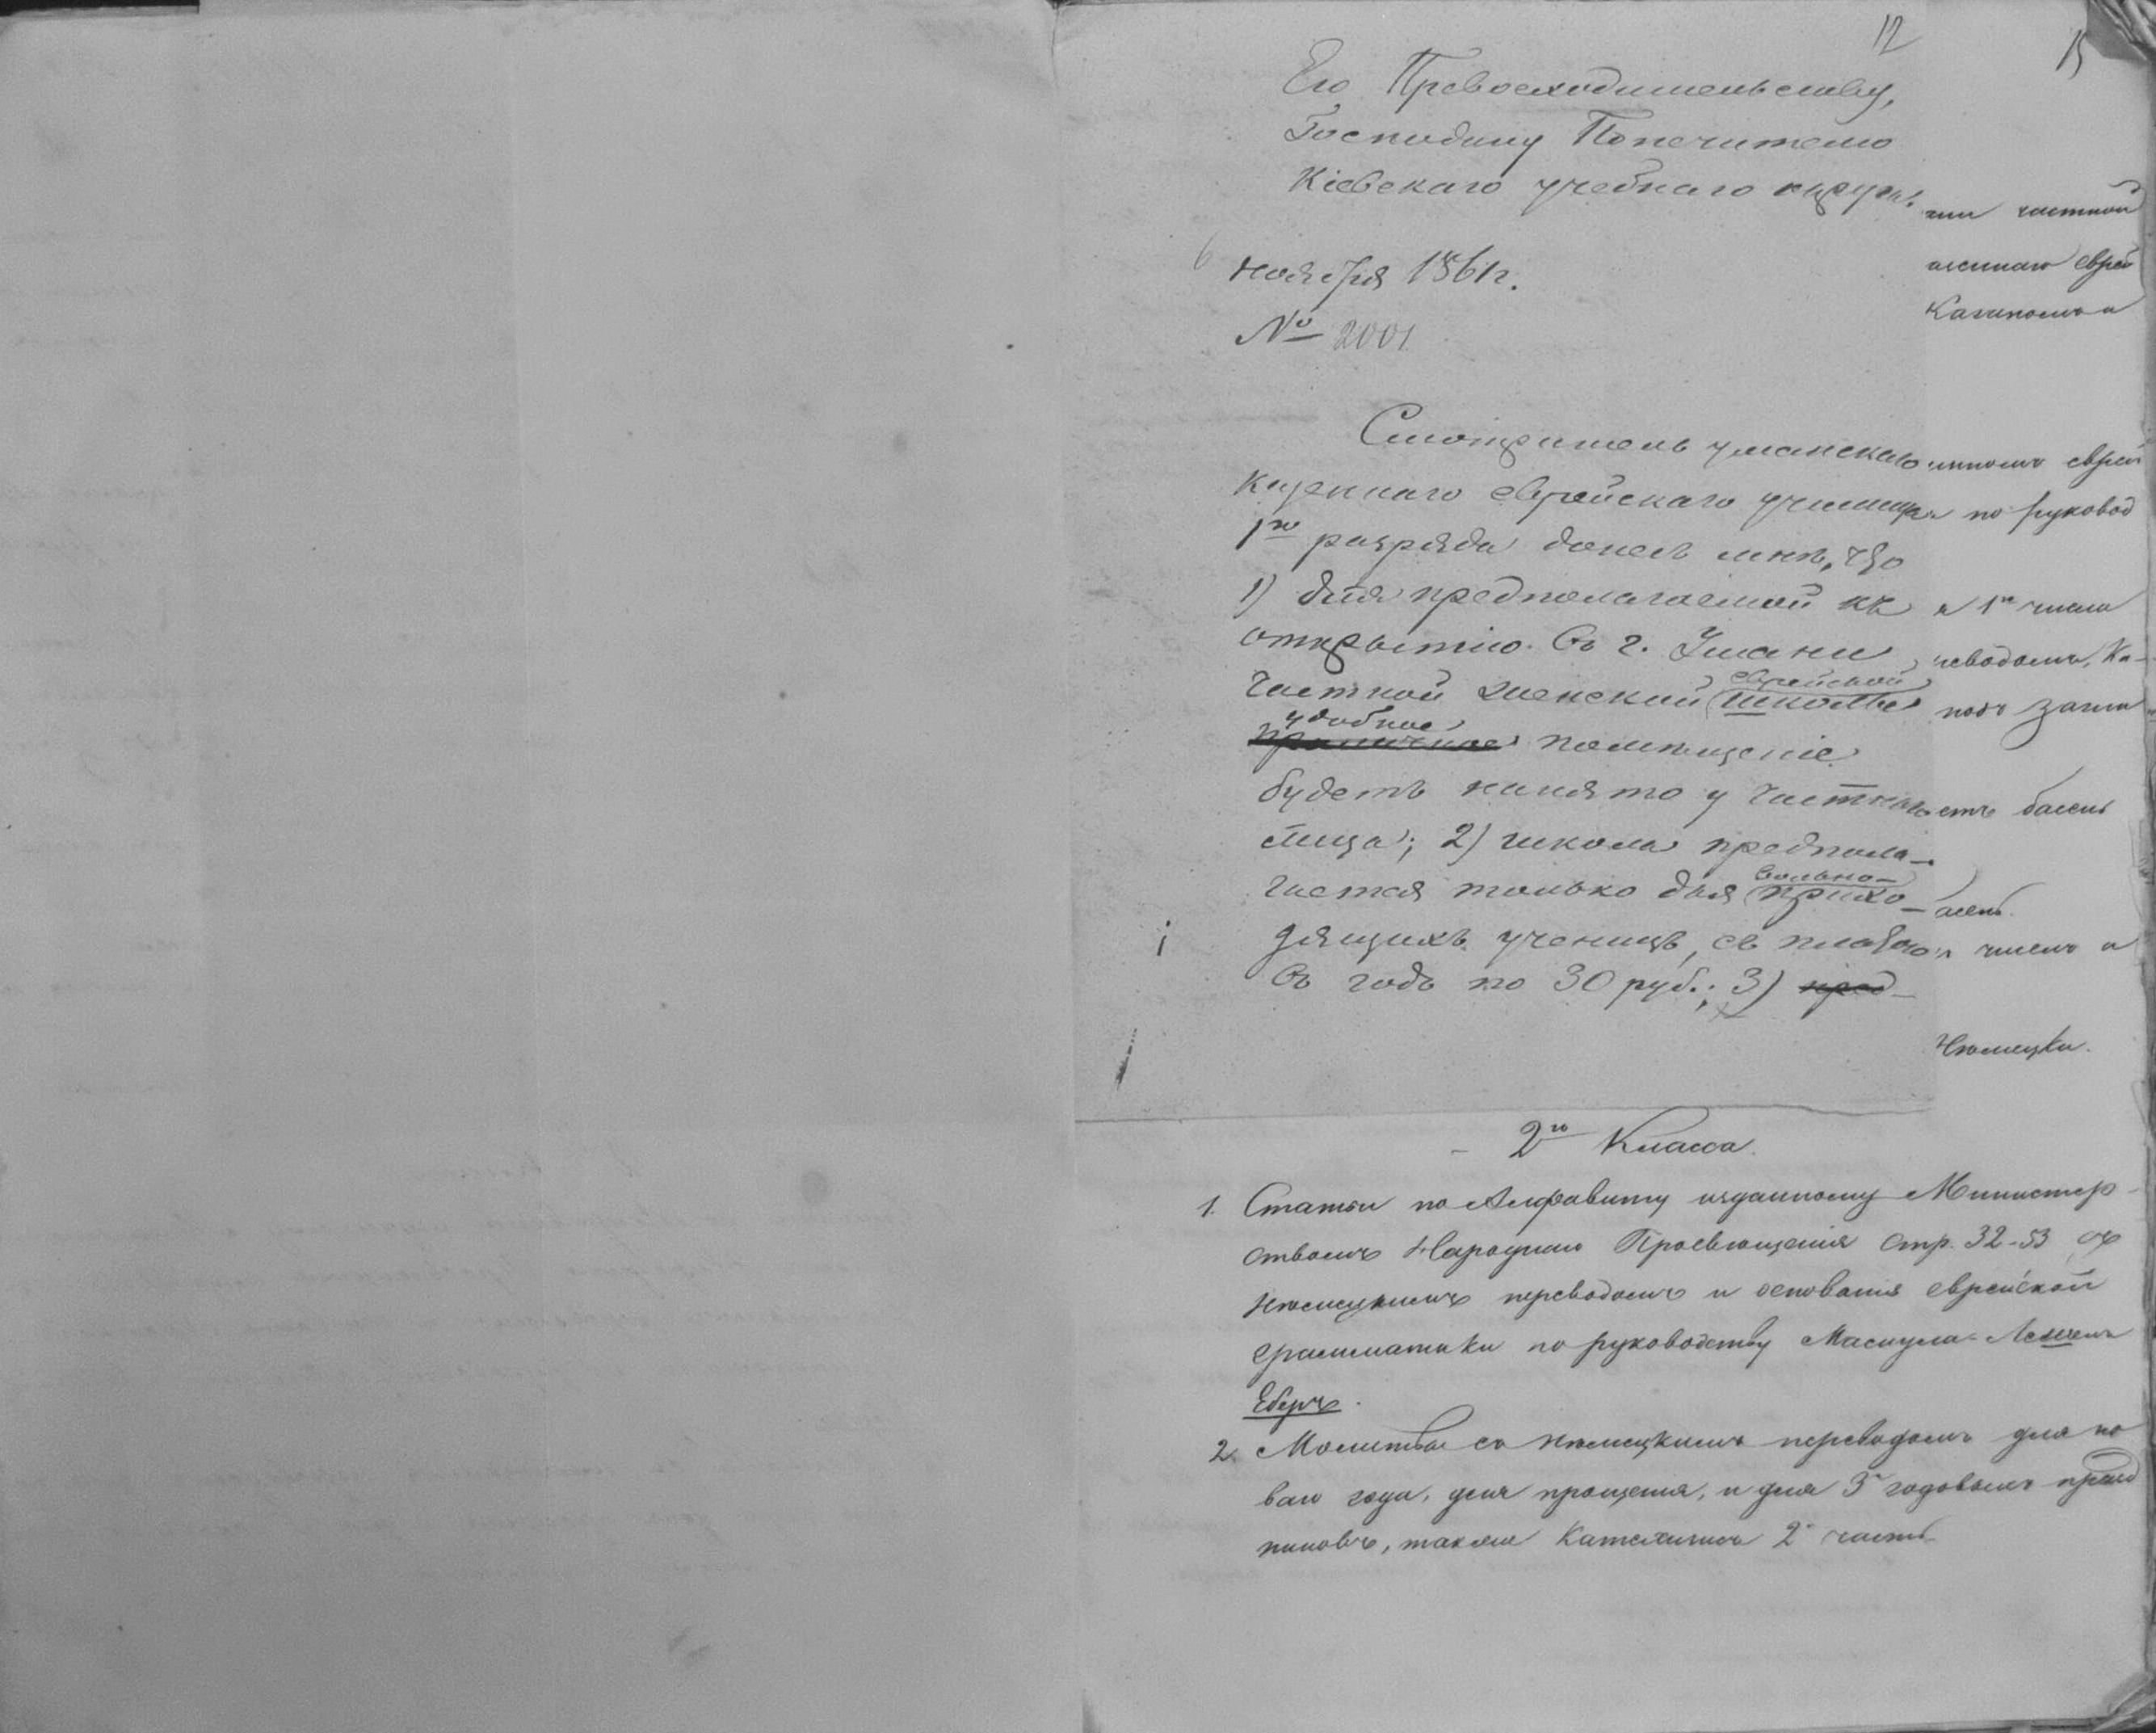 12
Его Превосходительству,
Господину Попечителю
Кіевскаго учебнаго округа.
6 ноября 1861 г.
№ 2001
Смотритель уманскаго
казеннаго еврейскаго училища
1го разряда донесъ мнѣ, что
1) для предполагаемой къ
открытію въ г. Умани
частной женской еврейской школы
удобное помѣщеніе
будетъ нанято у частнаго
лица; 2) школа предпола-
гается только для вольно-прихо-
дящихъ ученицъ, съ платою
въ годъ по 30 руб.; 3) пред-
частной
еврей
по руковод
1го числа
Нѣмецки.
2го Класса.
1. Статьи по Алфавиту изданному Министер-
ствомъ Народнаго Просвѣщенія стр. 32-53 съ
нѣмецкимъ переводомъ и основанія еврейской
грамматики по руководству Маслула-Лешенъ
Еберъ.
2. Молитвы съ нѣмецкимъ переводомъ для но
ваго года, дня прощенія, и для 3хъ годовыхъ празд
никовъ, также Катехизисъ 2я часть